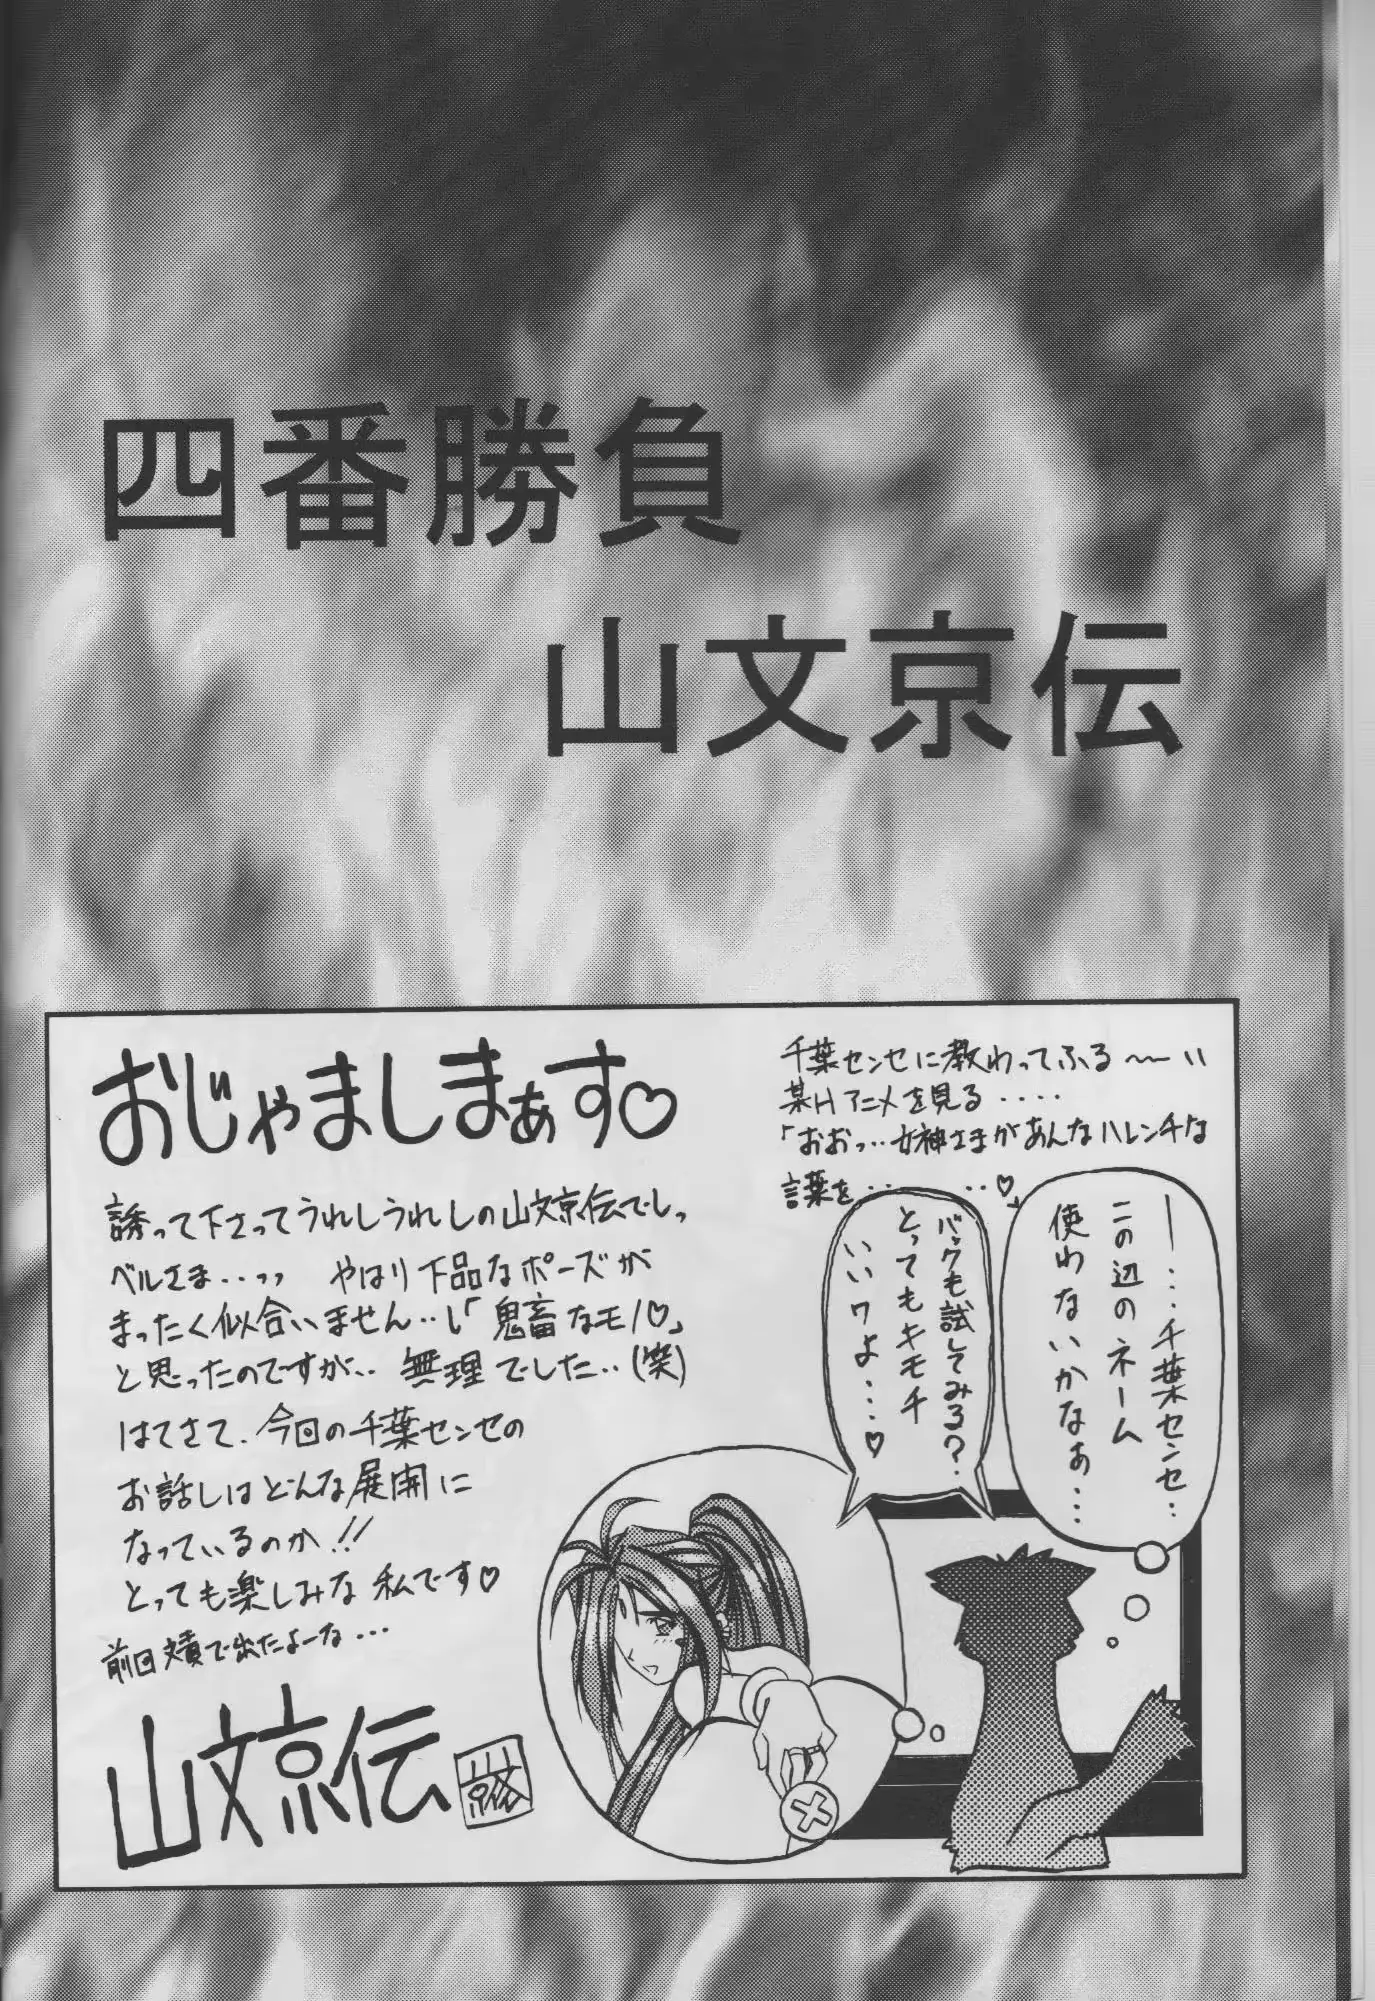 四番勝負
山文京伝
おじゃましまぁす♡
誘って下さってうれしうれしの山文京伝でしっ
ベルさま‥ッッ やはり下品なポーズが
まったく似合いません‥し「鬼畜なモノ♡」
と思ったのですが‥ 無理でした‥(笑)
はてさて、今回の千葉センセの
お話しはどんな展開に
なっているのか!!
とっても楽しみな私です♡
前回文責で出たよーな…
山文京伝
千葉センセに教わってふる〜〜い
某Hアニメを見る‥‥
「おおっ…女神さまがあんなハレンチな
言葉を‥‥‥♡」
―…千葉センセ‥
この辺のネーム
使わないかなぁ…
バックも試してみる?‥
とってもキモチ
いいワよ…♡